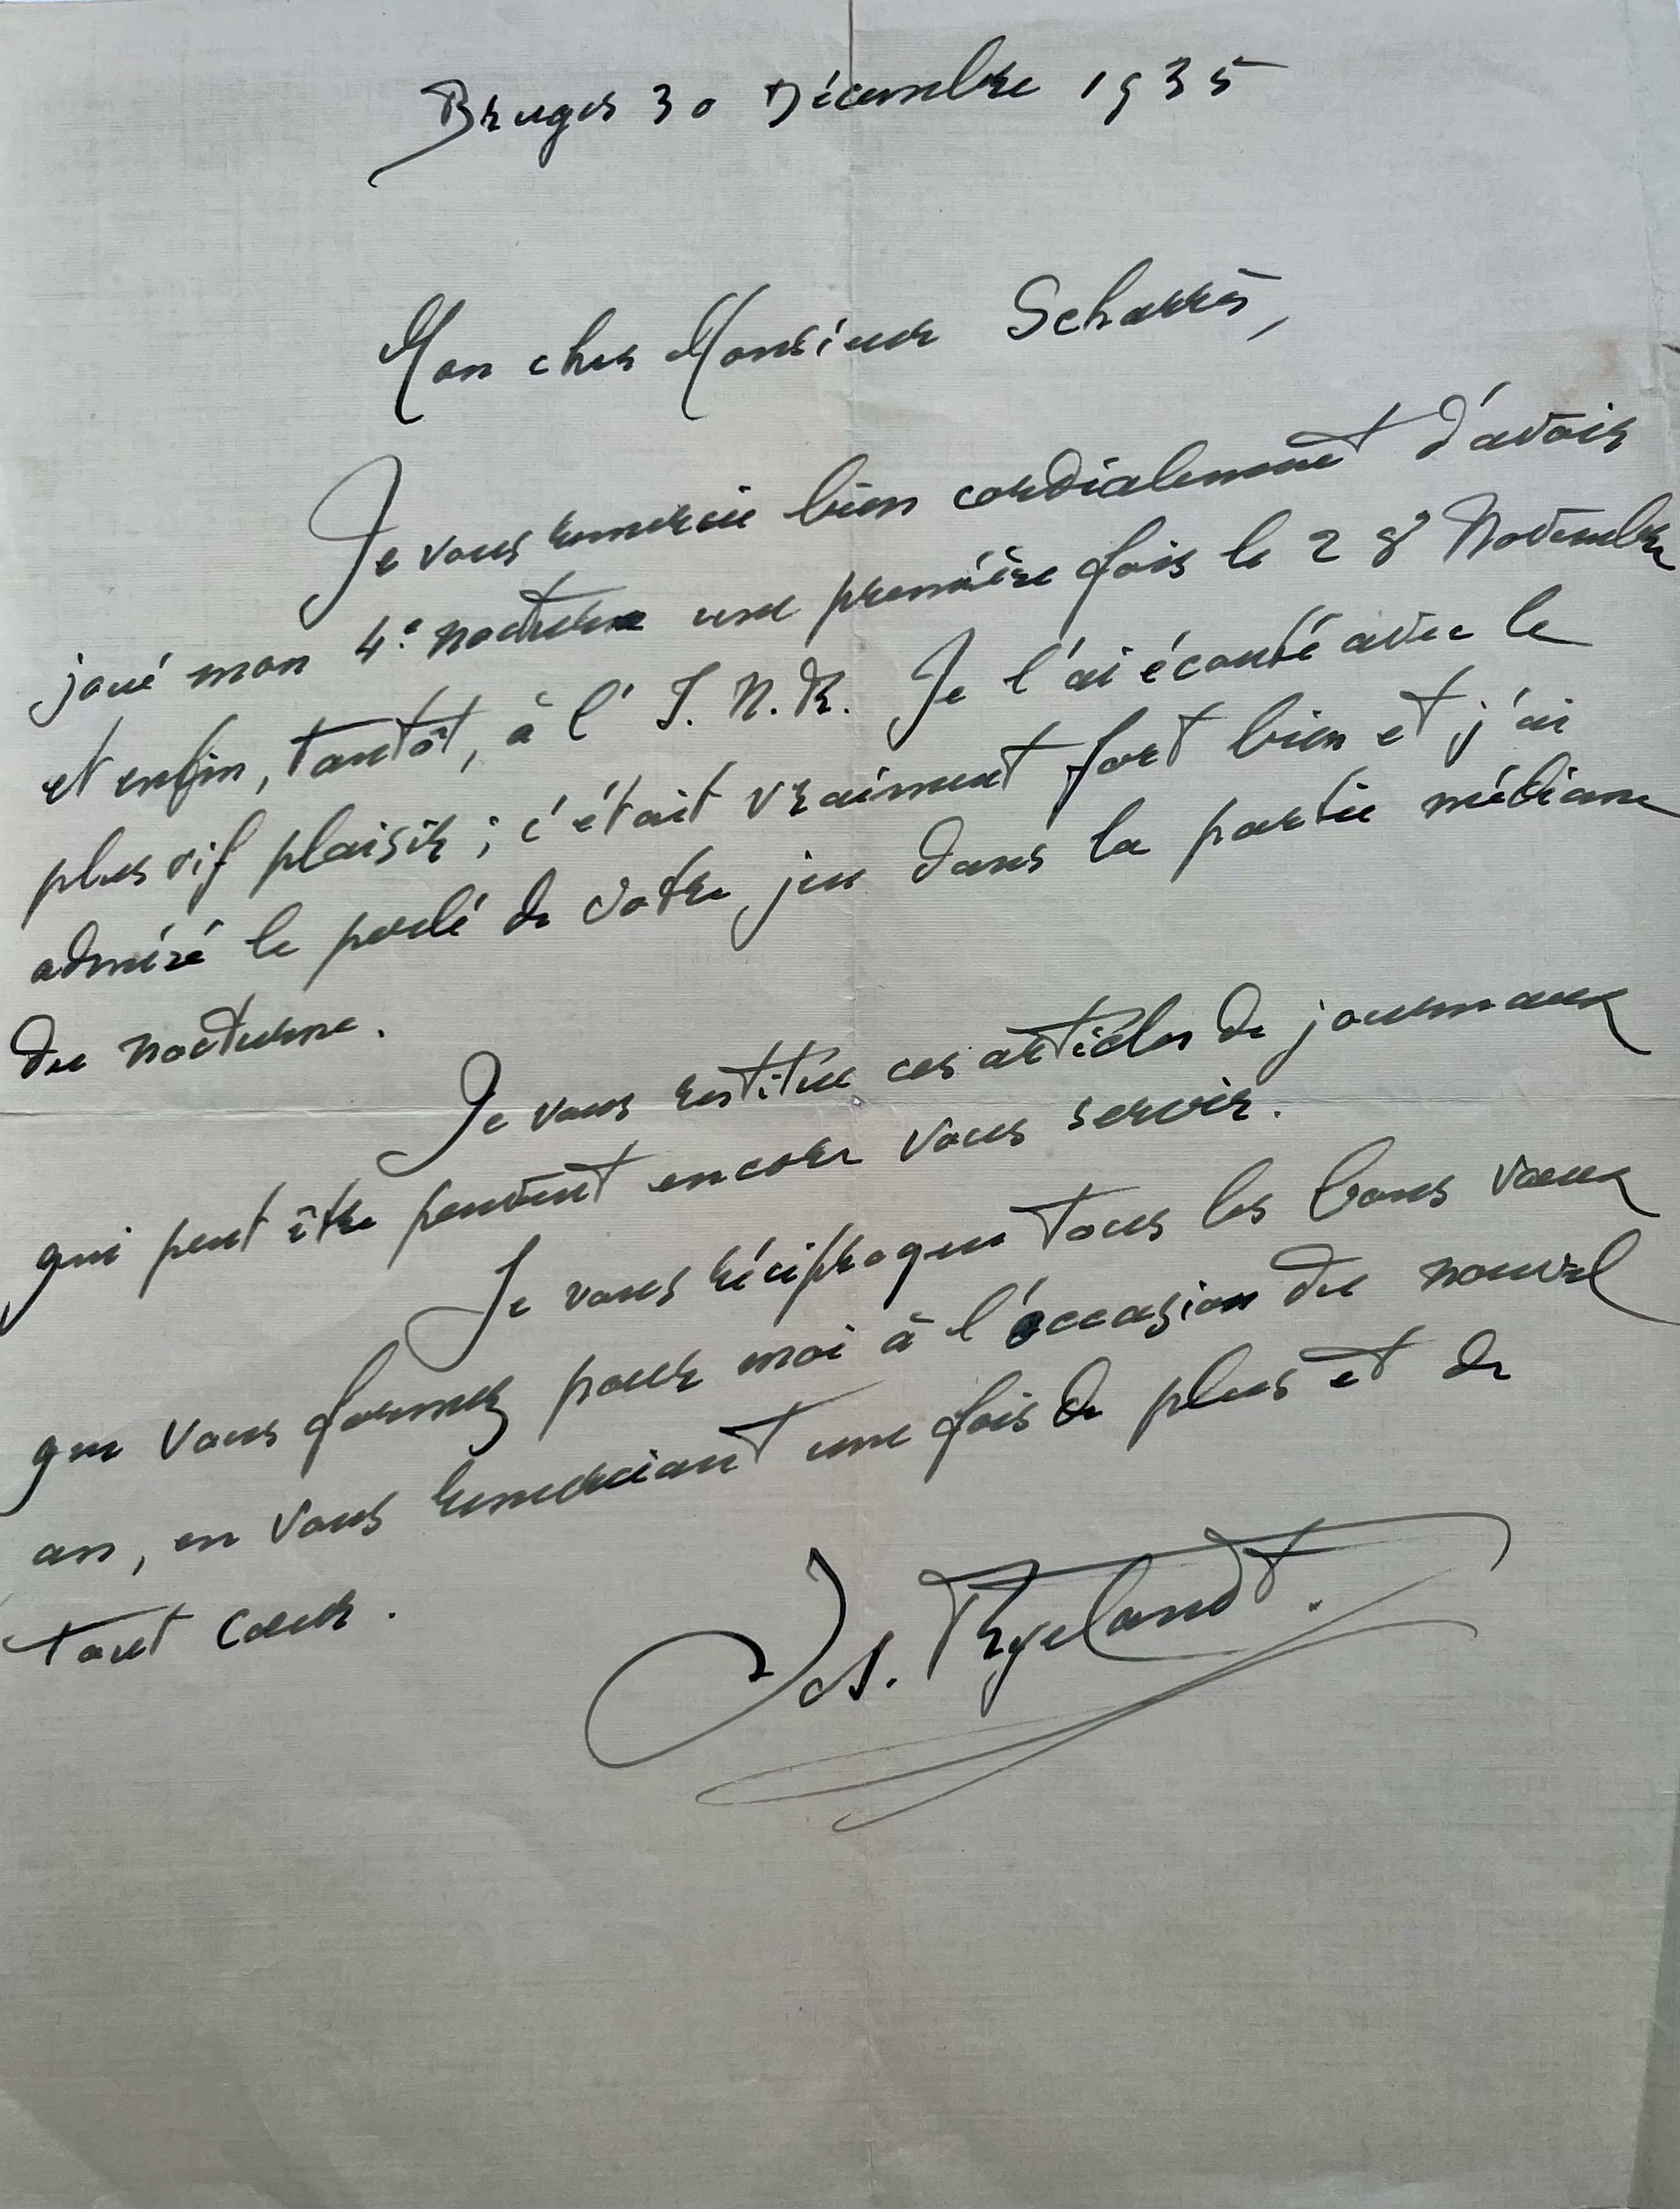 Bruges 30 Décembre 1935
Mon cher Monsieur Scharrès,
Je vous remercie bien cordialement d'avoir
joué mon 4e nocturne une première fois le 28 Novembre
et enfin, tantôt, à l' I. N. R. Je l'ai écouté avec le
plus vif plaisir ; c'était vraiment fort bien et j'ai
admiré le perlé de votre jeu dans la partie médiane
du nocturne.
Je vous restitue ces articles de journaux
qui peut être peuvent encore vous servir.
Je vous réciproque tous les bons vœux
que vous formez pour moi à l'occasion du nouvel
an, en vous remerciant une fois de plus et de
tout cœur.
Jos. Ryelandt.